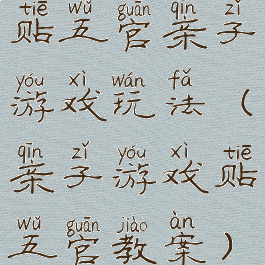 tiē wǔ guān qīn zǐ
贴五官亲子
yóu xì wán fǎ
游戏玩法（
qīn zǐ yóu xì tiē
亲子游戏贴
wǔ guān jiào àn
五官教案）